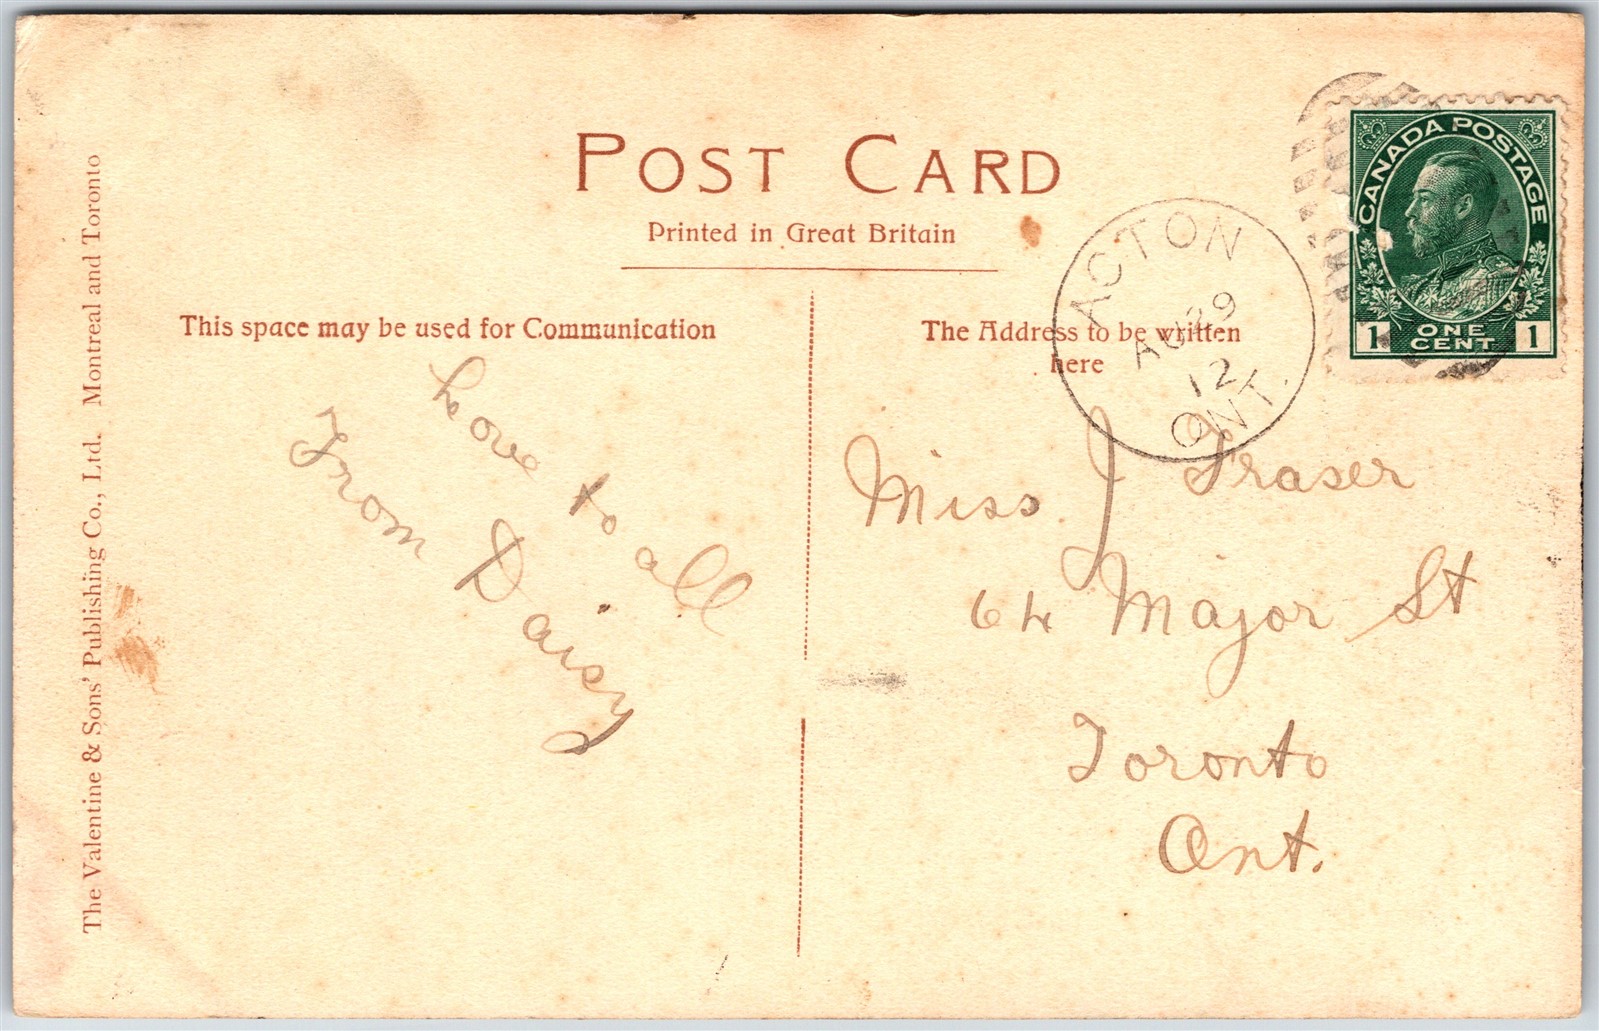 POST CARD
Printed in Great Britain
This space may be used for Communication
The Address to be written
here
The Valentine & Sons' Publishing Co., Ltd. Montreal and Toronto
CANADA POSTAGE
1 ONE CENT 1
ACTON
AU 29
12
ONT.
Love to all
From Daisy
Miss J Fraser
64 Major St
Toronto
Ont.